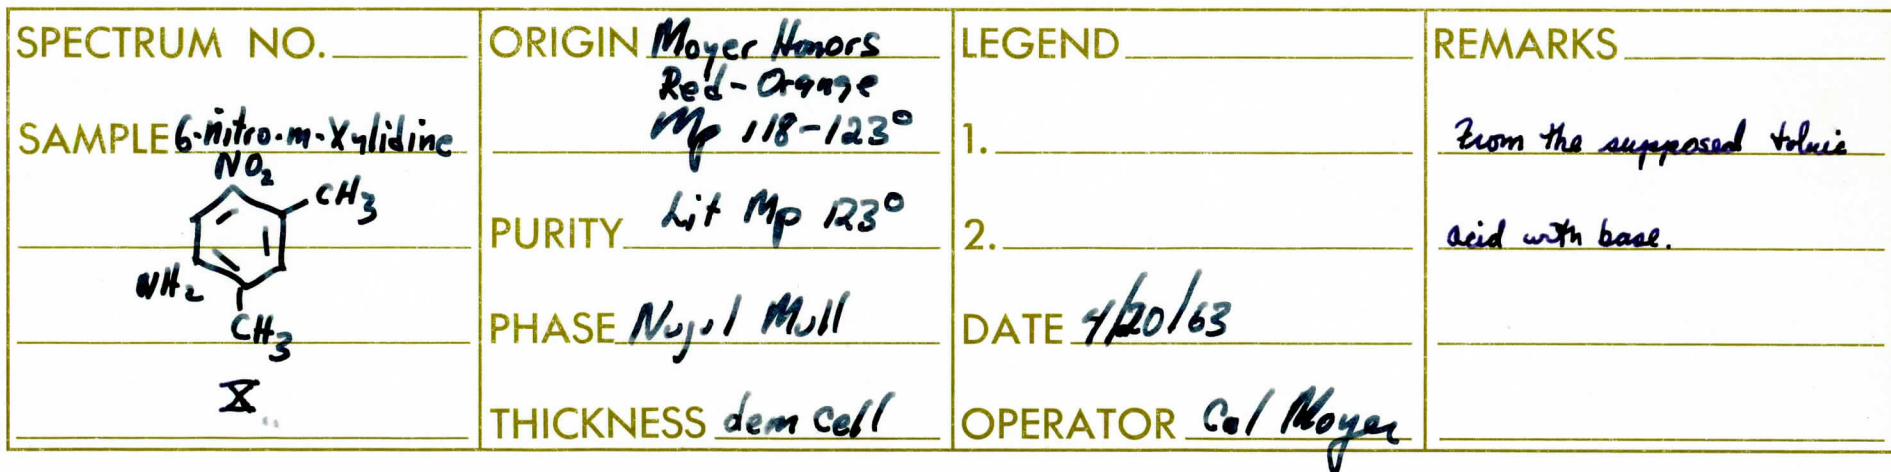 SPECTRUM NO.
SAMPLE 6-nitro-m-Xylidine
NO2
CH3
NH2
CH3
X
ORIGIN Moyer Honors
Red-Orange
Mp 118-123°
Lit Mp 123°
PURITY
PHASE Nujol Mull
THICKNESS dem cell
LEGEND
1.
2.
DATE 4/20/63
OPERATOR Cal Moyer
REMARKS
From the supposed toluic
acid with base.